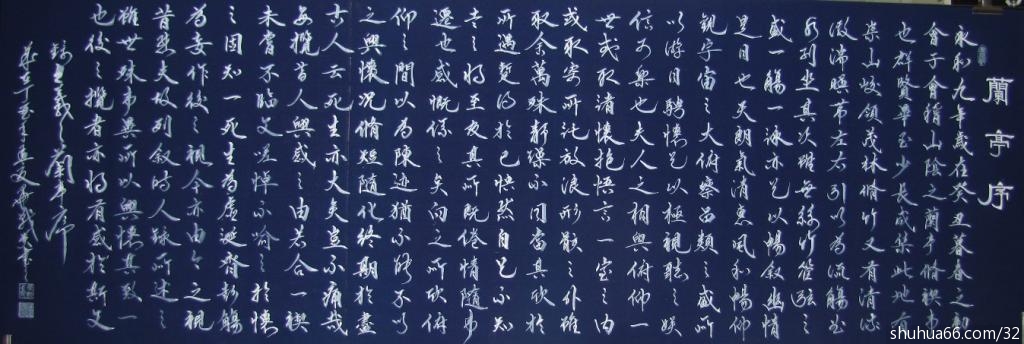 蘭亭序
永和九年歲在癸丑暮春之初
會于會稽山陰之蘭亭脩禊事
也群賢畢至少長咸集此地有
崇山峻領茂林脩竹又有清流
激湍暎帶左右引以為流觴曲
水列坐其次雖無絲竹管弦之
盛一觴一詠亦足以暢敘幽情
是日也天朗氣清惠風和暢仰
觀宇宙之大俯察品類之盛所
以遊目騁懷足以極視聽之娛
信可樂也夫人之相與俯仰一
世或取諸懷抱悟言一室之內
或取寄所託放浪形骸之外雖
取舍萬殊靜躁不同當其欣於
所遇暫得於己怏然自足不知
老之將至及其所既倦情隨事
遷也感慨係之矣向之所欣俯
仰之間以為陳迹猶不能不以
之興懷況脩短隨化終期於盡
古人云死生亦大矣豈不痛哉
每攬昔人興感之由若合一禊
未嘗不臨文嗟悼不喻之於懷
之固知一死生為虛誕齊彭殤
為妄作後之視今亦由今之視
昔悲夫故列敘時人錄所述之
雖世殊事異所以興懷其致一
也後之攬者亦將有感於斯文
錄王羲之蘭亭序
shuhua66.com/32